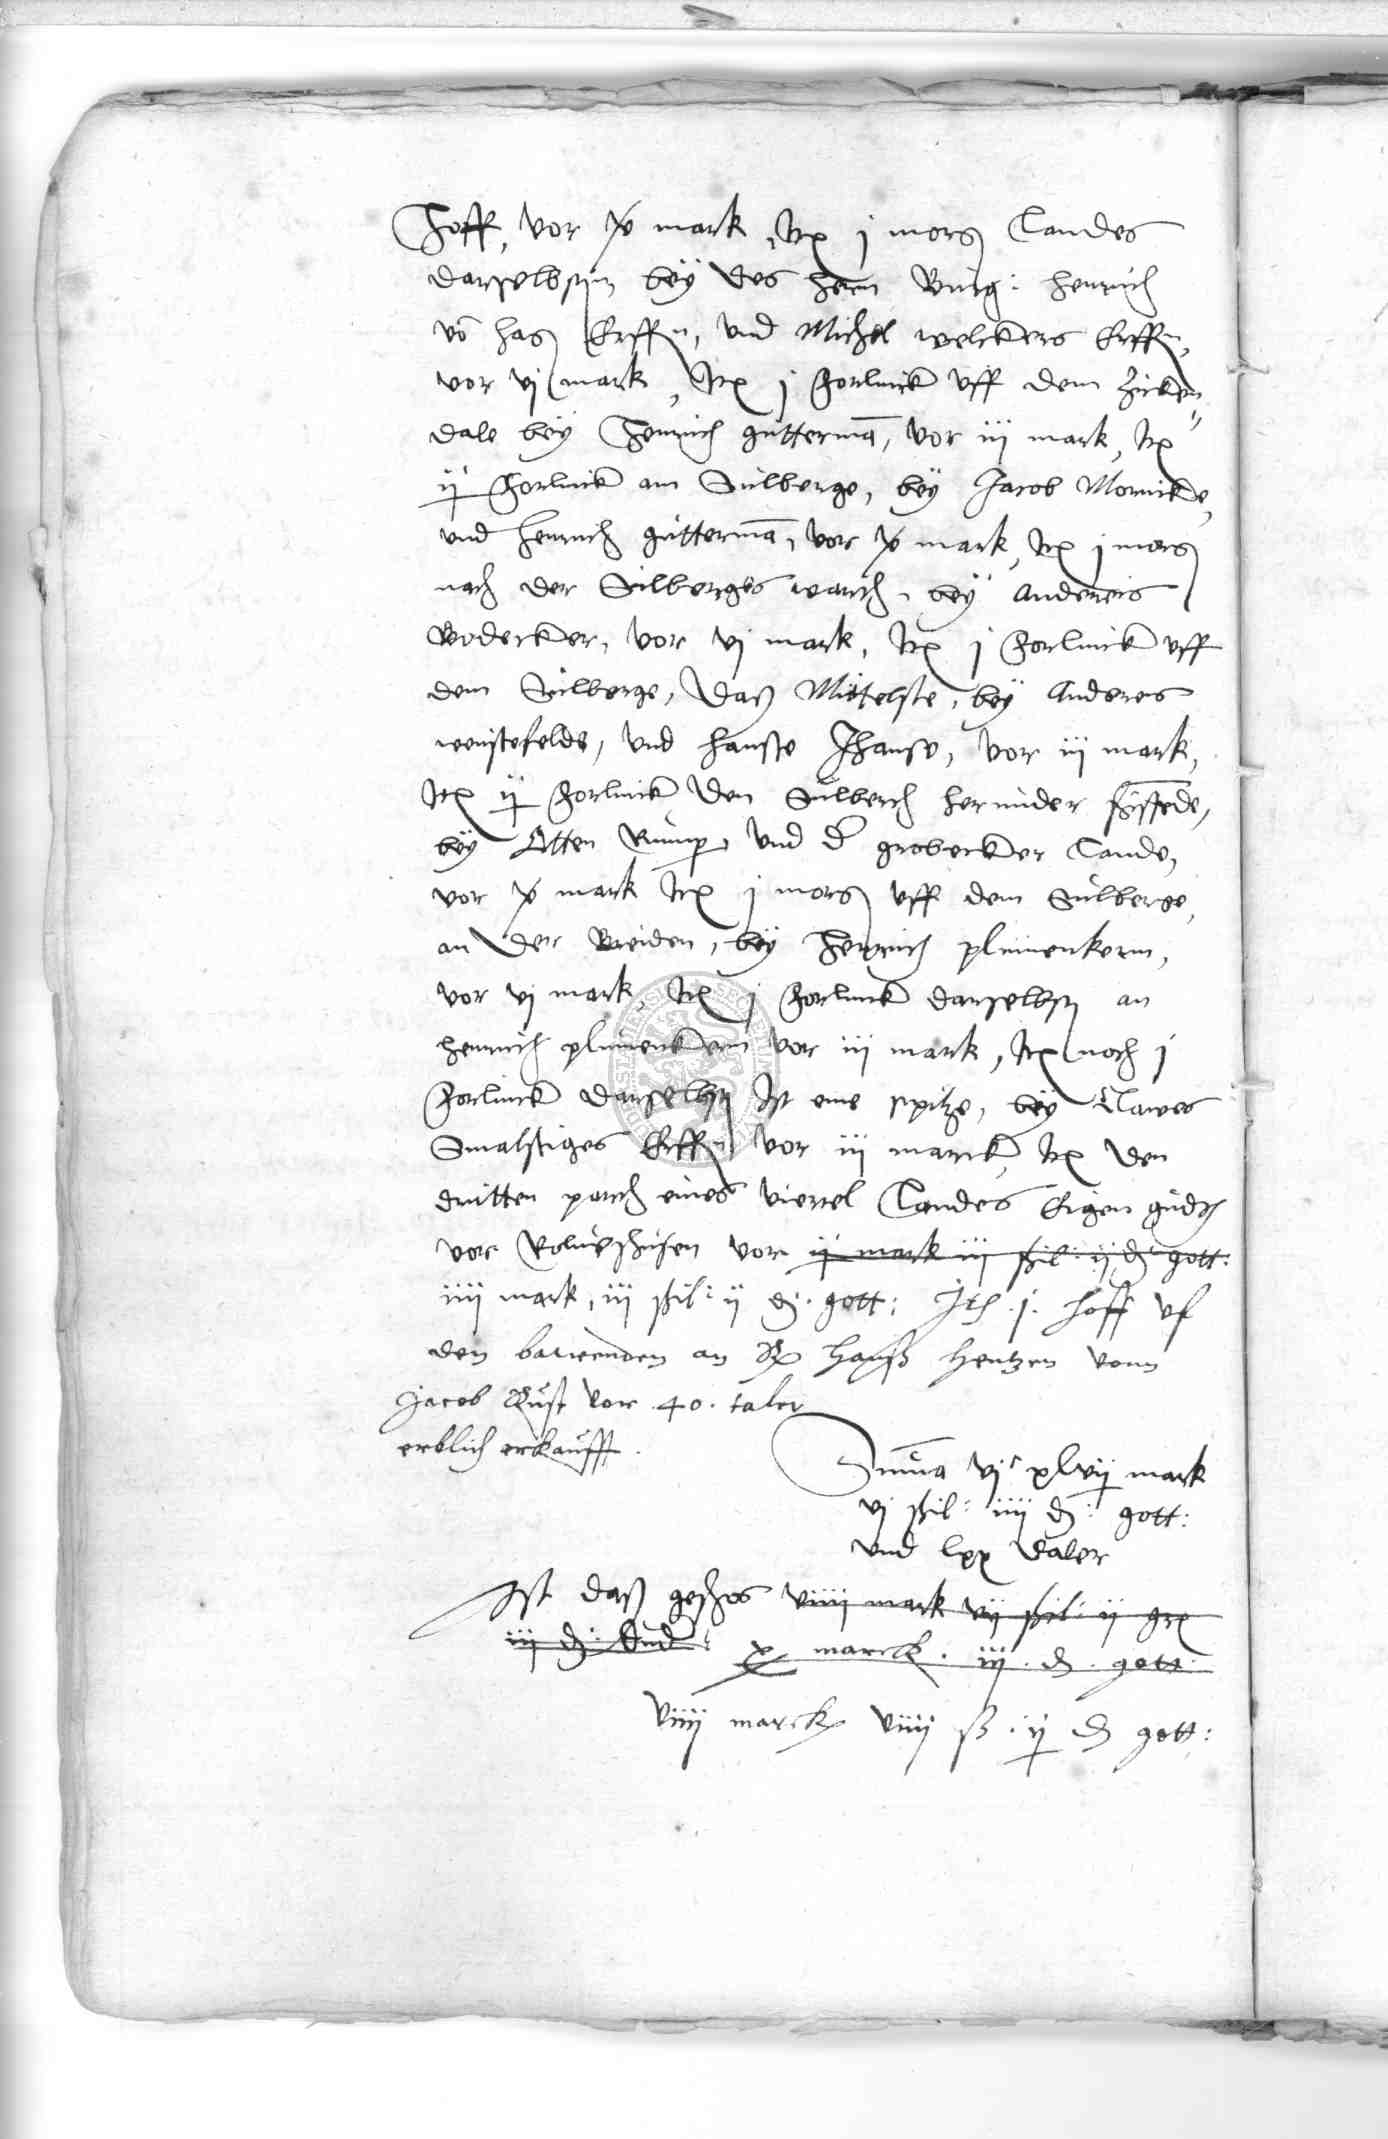 Hoff, vor x mark, Itē j morg Landes
darselbstin bey des hern Burg: Henrich
vō Hag Erffn, und Michel welckers Erffn,
vor vj mark, Itē j Forlinck uff dem Zicken
dale bey Henrich gutterma͞, vor iij mark, Itē
ij Forlinck am Sulberge, bey Jacob Mornik
und Henrich gutterma͞, vor mark, Itē j morg
nach der Sulberges warth, bey Andereis
Bodecker, vor vj mark, Itē j Forlinck uff
dem Sulberge, daß Mittelste, bey Anderes
westefelde, und hanste Jhanse, vor iij mark,
Itē ij Forlinck den Sulberch herunder
bey Otten Rump, und d grobecker Lande,
vor mark Itē j morg uff dem Sulberge,
an der Breiden, bey Henrich plumenkorn,
vor vj mark, Itē j Forlinck darselbst an
Henrich plumenkorn vor iij mark, Itē noch j
Forlinck darselbst Ist eine spitze, bey Clawes
Smalstiges Erffn vor iij marck, Itē den
dritten parth eines viertel Landes Eigen gudt
vor Rolueshusen vor ij mark iij schil: ij d gott:
iiij mark, iij schil: ij d. gott: Itē .j. hoff uf
den an Hanß Hentzen vonn
Jacob Rust vor .40. taler
erblich erkaufft.
Summa vjc xlvij mark
vj schil: iiij d: gott:
und lxx daler
Ist daß geschos viiij mark vij schil: ij gr
iij d: x marck. iij. d. gott:
viiij marck viiij ß. ij d gott: